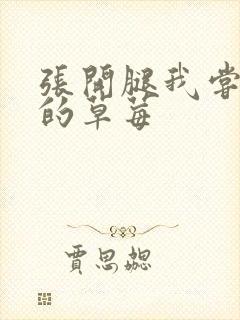 張開腿我嘗
的草莓
賈思勰